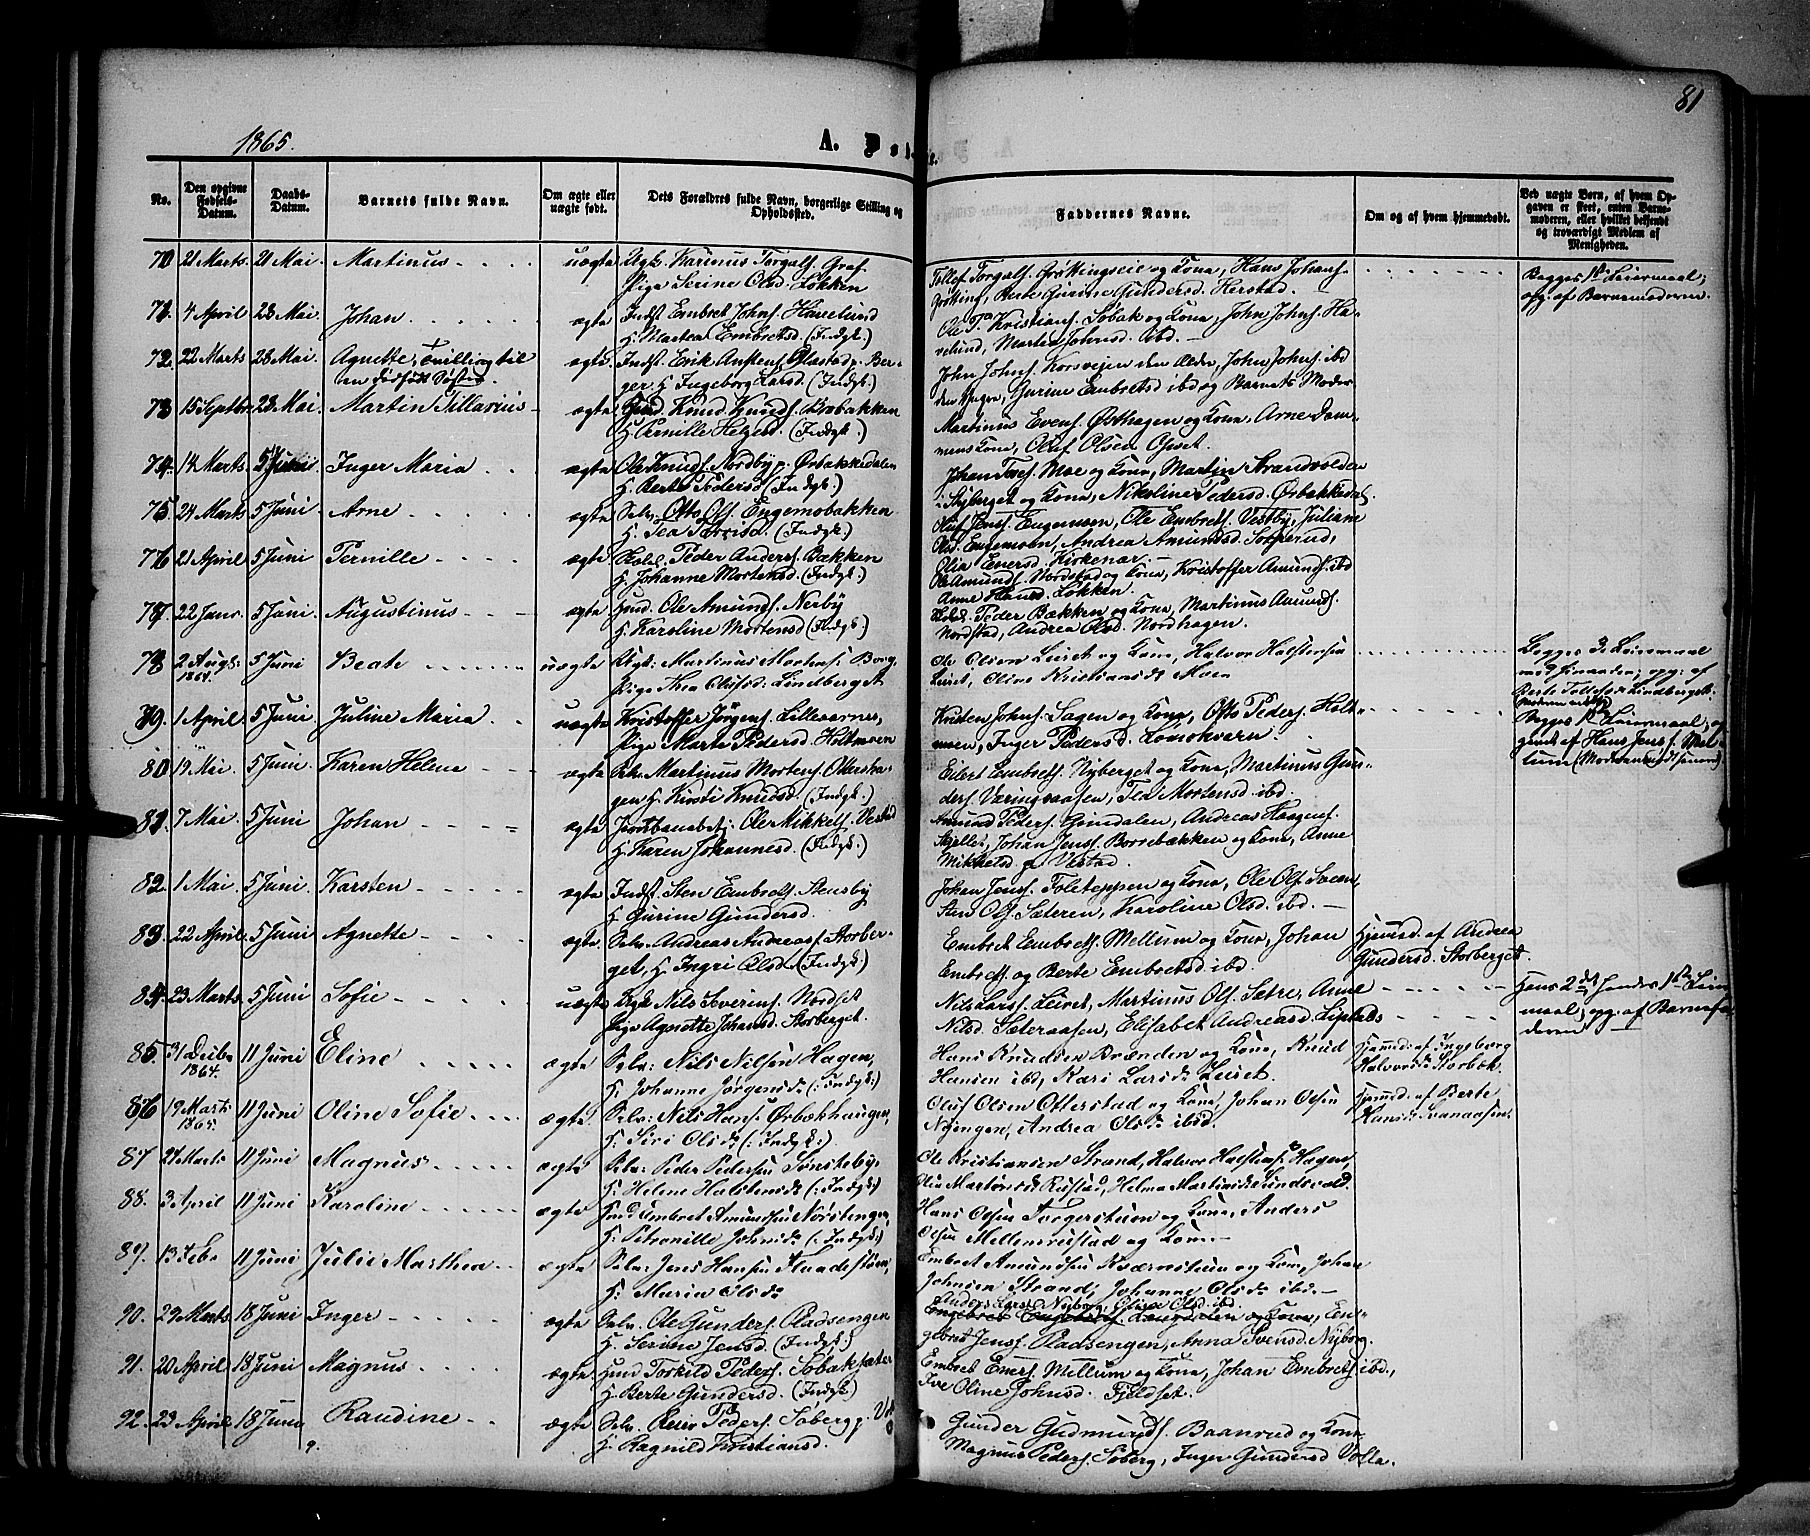 81
1865.
A. Døbte.
No.
Den opgivne Fødsels-Datum.
Daabs-Datum.
Barnets fulde Navn.
Om ægte eller uægte født.
Dets Forældres fulde Navn, borgerlige Stilling og Opholdssted.
Faddernes Navne.
Om og af hvem hjemmedøbt.
Ved uægte Børn, af hvem Opgaven er skeet, enten Barnemoderen, eller hvilket bekjendt og troværdigt Medlem af Menigheden.
70 21 Marts 21 Mai Martinus uægte Ugk. Karinus Torgalfs. Graf
Pige Serine Olsd. Løkken
Tollef Torgalfs. Grøttingseie og Kone, Hans Johans.
Grøtting, Berte Gurine Gundersd. Herstad.
Begges 1ste Leiermaal;
opg. af Barnemoderen.
71 4 April 28 Mai Johan ægte Indst Embret Johns. Havelund
H. Martea Embretsd. (Indgk.)
Ole T. Kristians. Sobak og Kone, John Johns. Ha-
velund, Martia Johnsd. ibd.
72 22 Marts 28 Mai Agnette, Tvilling til
en dødfødt Søster. ægte Indst. Erik Anstens. Glastad p. Ber-
ger, H. Ingeborg Larsd. (Indgk.)
John Johns. Korsvejen den Ældre, John Johns. ibd
den Yngre, Gurine Embretsd ibd og Barnets Moder
73 15 Septbr. 28 Mai Martin Tillarius ægte Hmd. Knud Knuds. Brobakken
H. Pernille Helgesd. (Indgk.)
Martinus Evens. Østhagen og Kone, Arne Dam-
mens Kone, Oluf Olsen Opset.
74 14 Marts 5 Juni Inger Maria ægte Ole Knuds. Nordby p. Ørbakkedalen
H. Berte Pedersd (Indgk.)
Johan Tores. Moe og Kone, Martin Strandvolden
i Nyberget og Kone, Nikoline Pedersd. Ørbakkedal.
75 24 Marts 5 Juni Arne ægte Selv. Otto Ols. Engemobakken
H. Tea Torrisd. (Indgk.)
Oluf Jens. Engemoen, Ole Embrets. Vestby, Juliane
Olsd. Engemoen, Andrea Amundsd. Sorperud,
Olia Enersd. Kirkenær
76 21 April 5 Juni Pernille ægte Peder Anders. Bakken
H. Johanne Mortensd. (Indgk.)
Ole Amunds. Nordstad og Kone, Kristoffer Amunds. ibd
Anne Hansd. Løkken.
77 22 Janr. 5 Juni Augustinus ægte Hmd. Ole Amunds. Nerby
H. Karoline Mortensd (Indgk.)
Peder Bakken og Kone, Martinus Amunds.
Nordstad, Andrea Olsd. Nordhagen.
78 2 Augs. 1864. 5 Juni Beate uægte Ugk: Martinus Mortens. Borg,
Pige Thea Olufsd: Lindberget
Ole Olsen Leiret og Kone, Halvor Halstensen
Leiret, Oline Kristiansd. Moen
Begges 3die Leiermaal
med hinanden; opg. af
Berte Tollefsen Lindberget.
79. 1 April 5 Juni Juline Maria uægte Kristoffer Jørgens. Lilleaarnes,
Pige Marte Pedersd. Holtmoen
Kristen Johns. Sagen og Kone, Otto Peders. Holt-
moen, Inger Pedersd. Lomokværn
Begges 1ste Leiermaal, op-
givet af Hans Jens.
80 19 Mai. 5 Juni Karen Helene ægte Selv. Martinus Mortens. Ottersha-
gen H. Kirsti Knudsd. (Indgk.)
Eilert Embrets. Nyberget og Kone, Martinus Gun-
ders. Væringsaasen, Tea Mortensd ibd.
81 7 Mai 5 Juni Johan ægte Jernbanebetj: Ole Mikkels. Vestad
H. Karen Johannesd. (Indgk.)
Amund Peders. Grindalen, Andreas Haagens.
Skjeller, Johan Jens. Borrebækken og Kone, Anne
Mikkelsd p. Vestad.
82. 1 Mai 5 Juni Karsten ægte Indst. Sten Embrets. Stensby
H. Gurine Gundersd.
Johan Jens. Toletoppen og Kone, Ole Ols. Svæen,
Sten Ols. Sæteren, Karoline Olsd. ibd.
83 22 April 5 Juni Agnette ægte Selv. Andreas Andreas. Storber-
get, H. Ingri Olsd. (Indgk.)
Embret Embrets. Mellum og Kone, Johan
Embrets. og Berte Embretsd ibd.
Hjemmd. af Andrea
Gundersd. Storberget.
84. 23 Marts 5 Juni Sofie uægte Ugk. Nils Soverins. Nordset
Pige Agnette Johansd. Storberget.
Nils Lars. Leiret, Martinus Ols. Sætre, Anne
Nilsd Sæteraasen, Elisabet Andreasd. Lipstad
Hans 2det, hendes 1ste Leier-
maal; opg. af Barnefa-
deren
85 31 Decbr 1864. 11 Juni Eline ægte Selv: Nils Nilsen Hagen,
H. Johanne Jørgensd. (:Indgk:)
Hans Knudsen Brænden og Kone, Knud
Hansen ibd, Kari Larsd. Leiret.
Hjemmd: af Ingeborg
Halvorsd. Storbæk.
86 19 Marts 1865. 11 Juni Oline Sofie ægte Selv: Nils Hans. Ørbækhaugen,
H: Siri Olsd. (:Indgk:)
Oluf Olsen Otterstad og Kone, Johan Olsen
Nyengen, Andrea Olsd. ibd.
Hjemmd. af Berte
Hansd. Svanaasen.
87 27 Marts 11 Juni Magnus ægte Selv: Peder Pedersen Sønsteby,
H: Helene Halstensd. (:Indgk:)
Ole Kristiansen Strand, Halvor Halstens. Hagen,
Olia Martinsd. Rustad, Helma Martinsd. Sundsvold.
88. 3 April 11 Juni Karoline ægte Hmd Embret Amundsen Nørstengen,
H: Petronille Johnsd. (:Indgk:)
Hans Olsen Torgerstuen og Kone, Anders
Olsen Mellemrustad og Kone.
89. 13 Febr 11 Juni Julie Marthea ægte Selv: Jens Hansen Flaadestøen,
H: Maria Olsd.
Embret Amundsen Kværnstuen og Kone, Johan
Johnsen Strand, Johanne Olsd. ibd.
90. 29 Marts 18 Juni Inger ægte Selv. Ole Gunders. Pladsengen
H. Serine Jensd. (Indgk.)
Anders Larsen Nyborg, Elise Olsd. ibd.
Engebret Jens. Pladsengen, Anna Svensd. Nyborg.
91. 20 April 18 Juni Magnus ægte Hmd Torkild Peders. Sobaksæter
H. Berte Gundersd. (Indgk.)
Embret Eners. Mellum og Kone, Johan Embrets. ibd.,
Eve Oline Johnsd. Fjeldset.
92. 23 April 18 Juni Randine ægte Selv. Peder Peders. Soberg p. Vol
H. Ragnild Kristiansd.
Gunder Gudmunds. Baanrud og Kone
Magnus Peders. Soberg, Inger Gundersd Volla.
9.